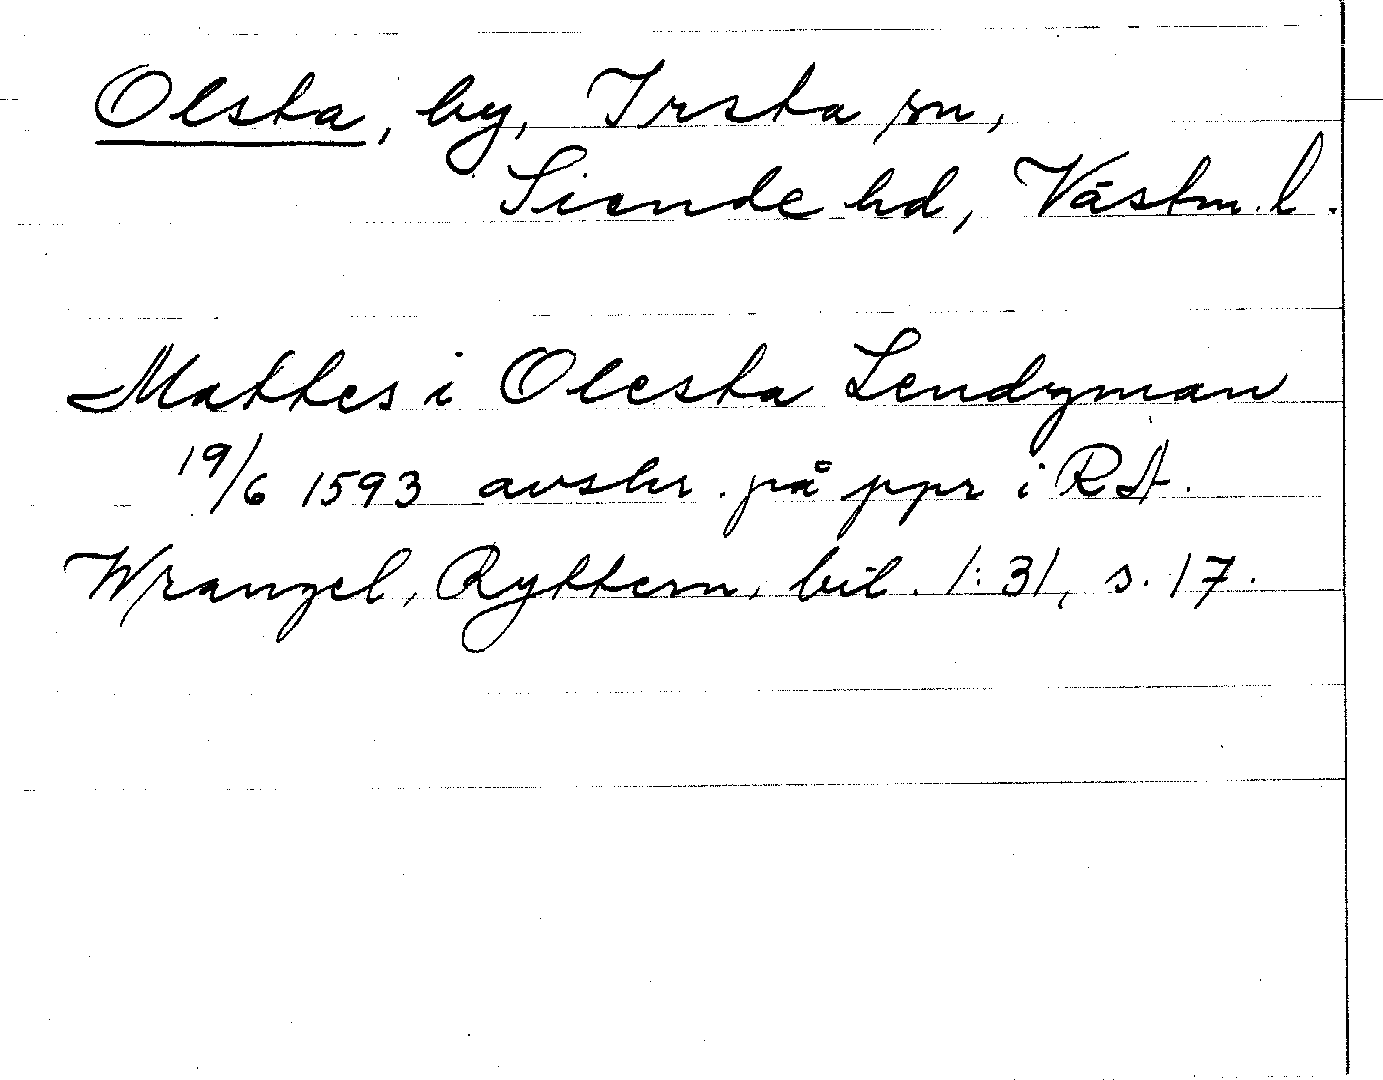 Olsta, by, Irsta sn,
Siende hd, Västm. l.
Mattes i Olesta Lendzman
19/6 1593 avskr. på ppr i RA.
Wrangel, Ryttern, bil. 1:31, s. 17.